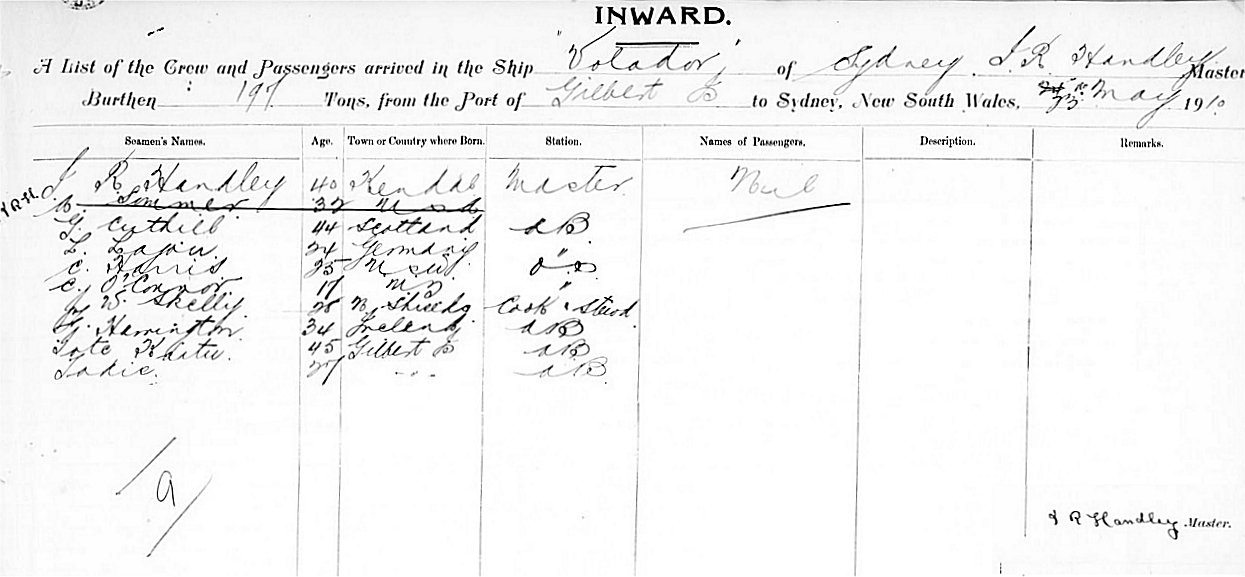 INWARD.
A List of the Crew and Passengers arrived in the Ship "Volador" of Sydney, J. R. Handley Master
Burthen 197 Tons, from the Port of Gilbert Is to Sydney, New South Wales, 23 May 1910
Seamen's Names. Age. Town or Country where Born. Station. Names of Passengers. Description. Remarks.
J R Handley 40 Kendal Master Nil
J R H. Simmer 32
G. Cuthill 44 Scotland AB
L. 24 Germany "
C. Harris 25 NSW O.S
C. O'Connor 17 NZ "
J. W. Skelly 28 N. Shields Cook & Stewd
J. Harrington 34 Ireland AB
Tote Kaitu 45 Gilbert Is AB
Tadie 27 " " AB
9
J R Handley Master.